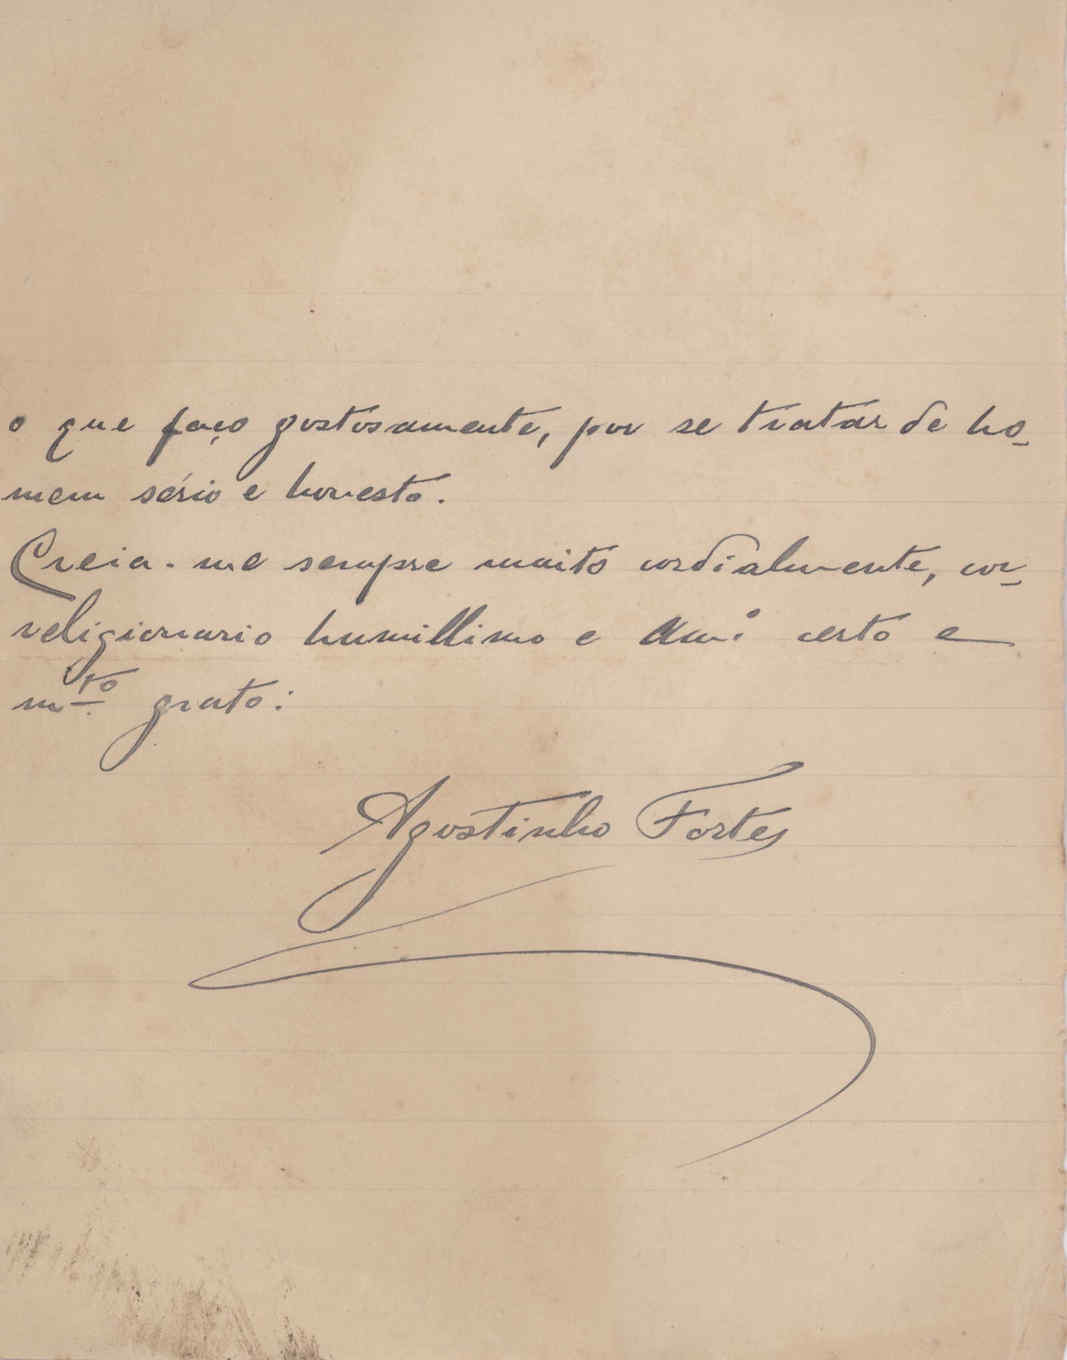 o que faço gostosamente, por se tratar de ho-
mem sério e honesto.
Creia-me sempre muito cordialmente, cor-
religionario humillimo e Am.º certo e
m.to grato:
Agostinho Fortes